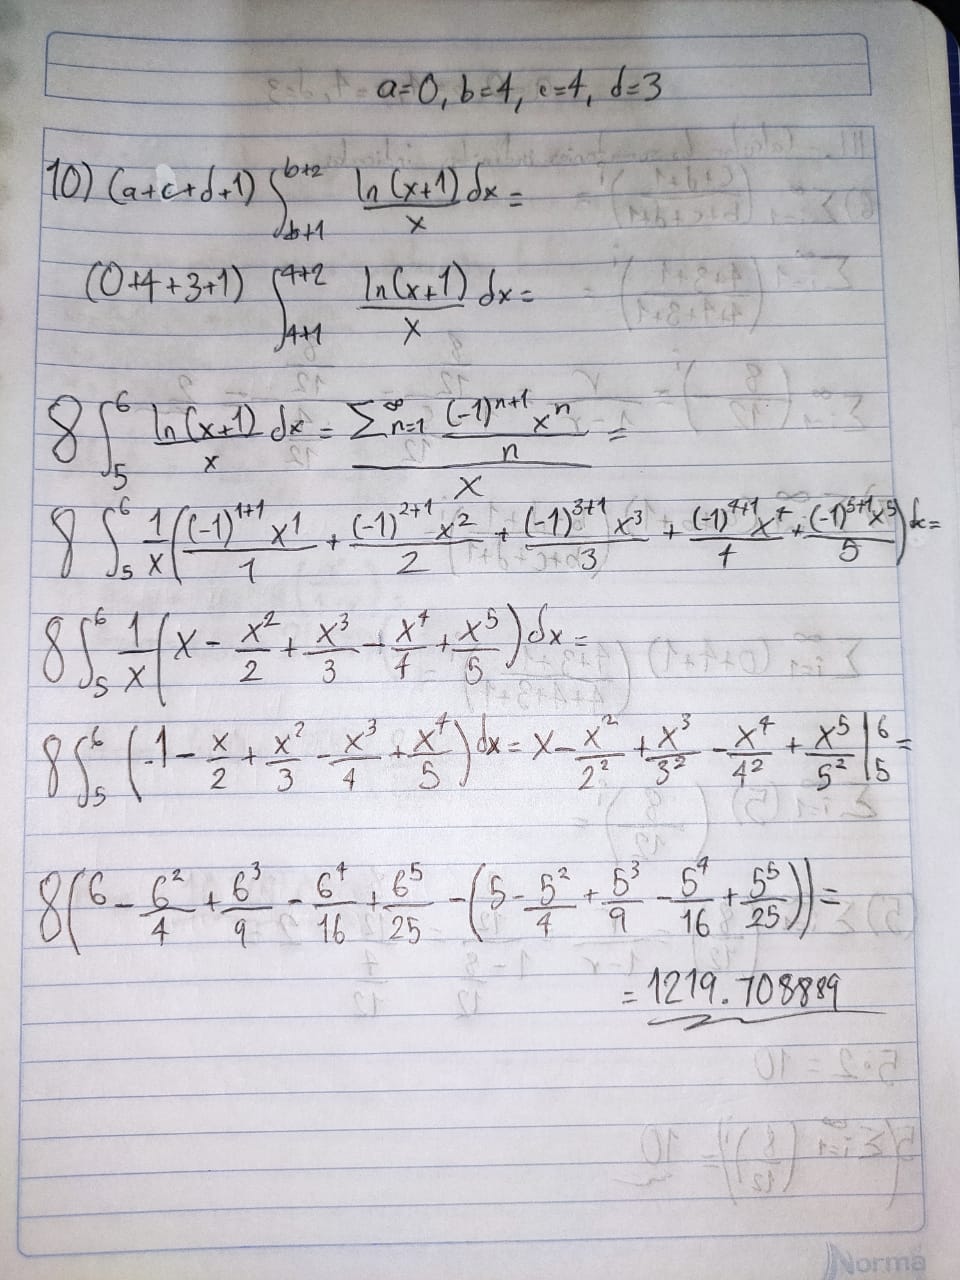 a=0, b=4, c=4, d=3
10) (a+c+d+1) ∫_{b+1}^{b+2} ln(x+1)/x dx =
(0+4+3+1) ∫_{4+1}^{4+2} ln(x+1)/x dx =
8 ∫_5^6 ln(x+1)/x dx = (Σ_{n=1}^∞ (-1)^{n+1} x^n / n) / x =
8 ∫_5^6 1/x ((-1)^{1+1} x^1/1 + (-1)^{2+1} x^2/2 + (-1)^{3+1} x^3/3 + (-1)^{4+1} x^4/4 + (-1)^{5+1} x^5/5) dx =
8 ∫_5^6 1/x (x - x^2/2 + x^3/3 - x^4/4 + x^5/5) dx =
8 ∫_5^6 (1 - x/2 + x^2/3 - x^3/4 + x^4/5) dx = x - x^2/2^2 + x^3/3^2 - x^4/4^2 + x^5/5^2 |_5^6 =
8(6 - 6^2/4 + 6^3/9 - 6^4/16 + 6^5/25 - (5 - 5^2/4 + 5^3/9 - 5^4/16 + 5^5/25)) =
= 1219.708889
Norma